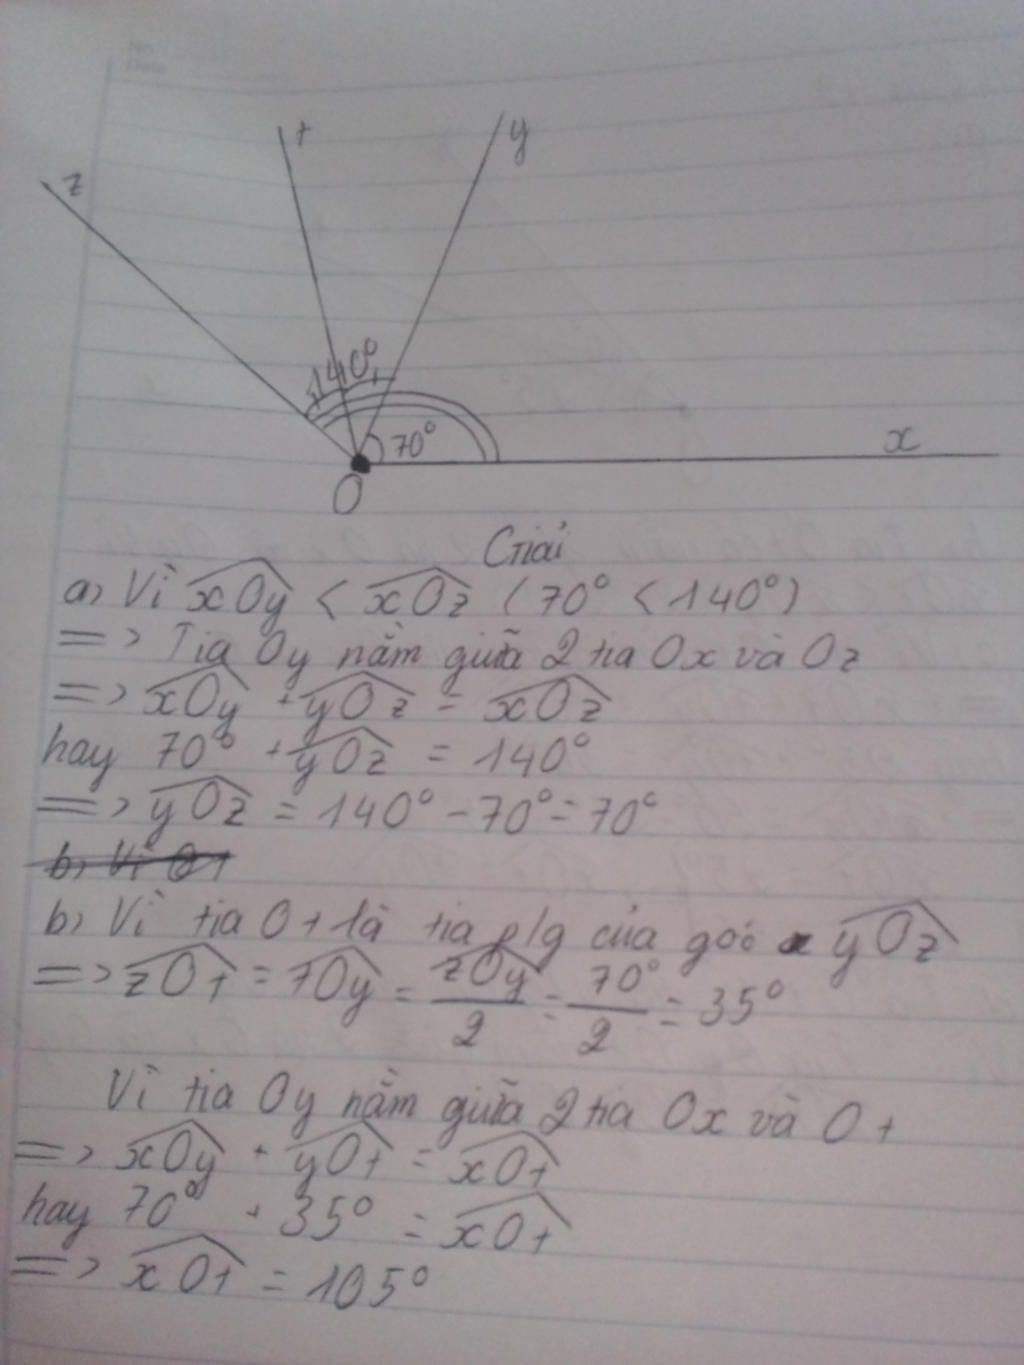 No.
Date
z
t
y
140°
70°
x
O
Giải
a) Vì xOy < xOz (70° < 140°)
=> Tia Oy nằm giữa 2 tia Ox và Oz
=> xOy + yOz = xOz
hay 70° + yOz = 140°
=> yOz = 140° - 70° = 70°
b) Vì Ot
b) Vì tia Ot là tia p/g của góc yOz
=> zOt = tOy = zOy/2 = 70°/2 = 35°
Vì tia Oy nằm giữa 2 tia Ox và Ot
=> xOy + yOt = xOt
hay 70° + 35° = xOt
=> xOt = 105°